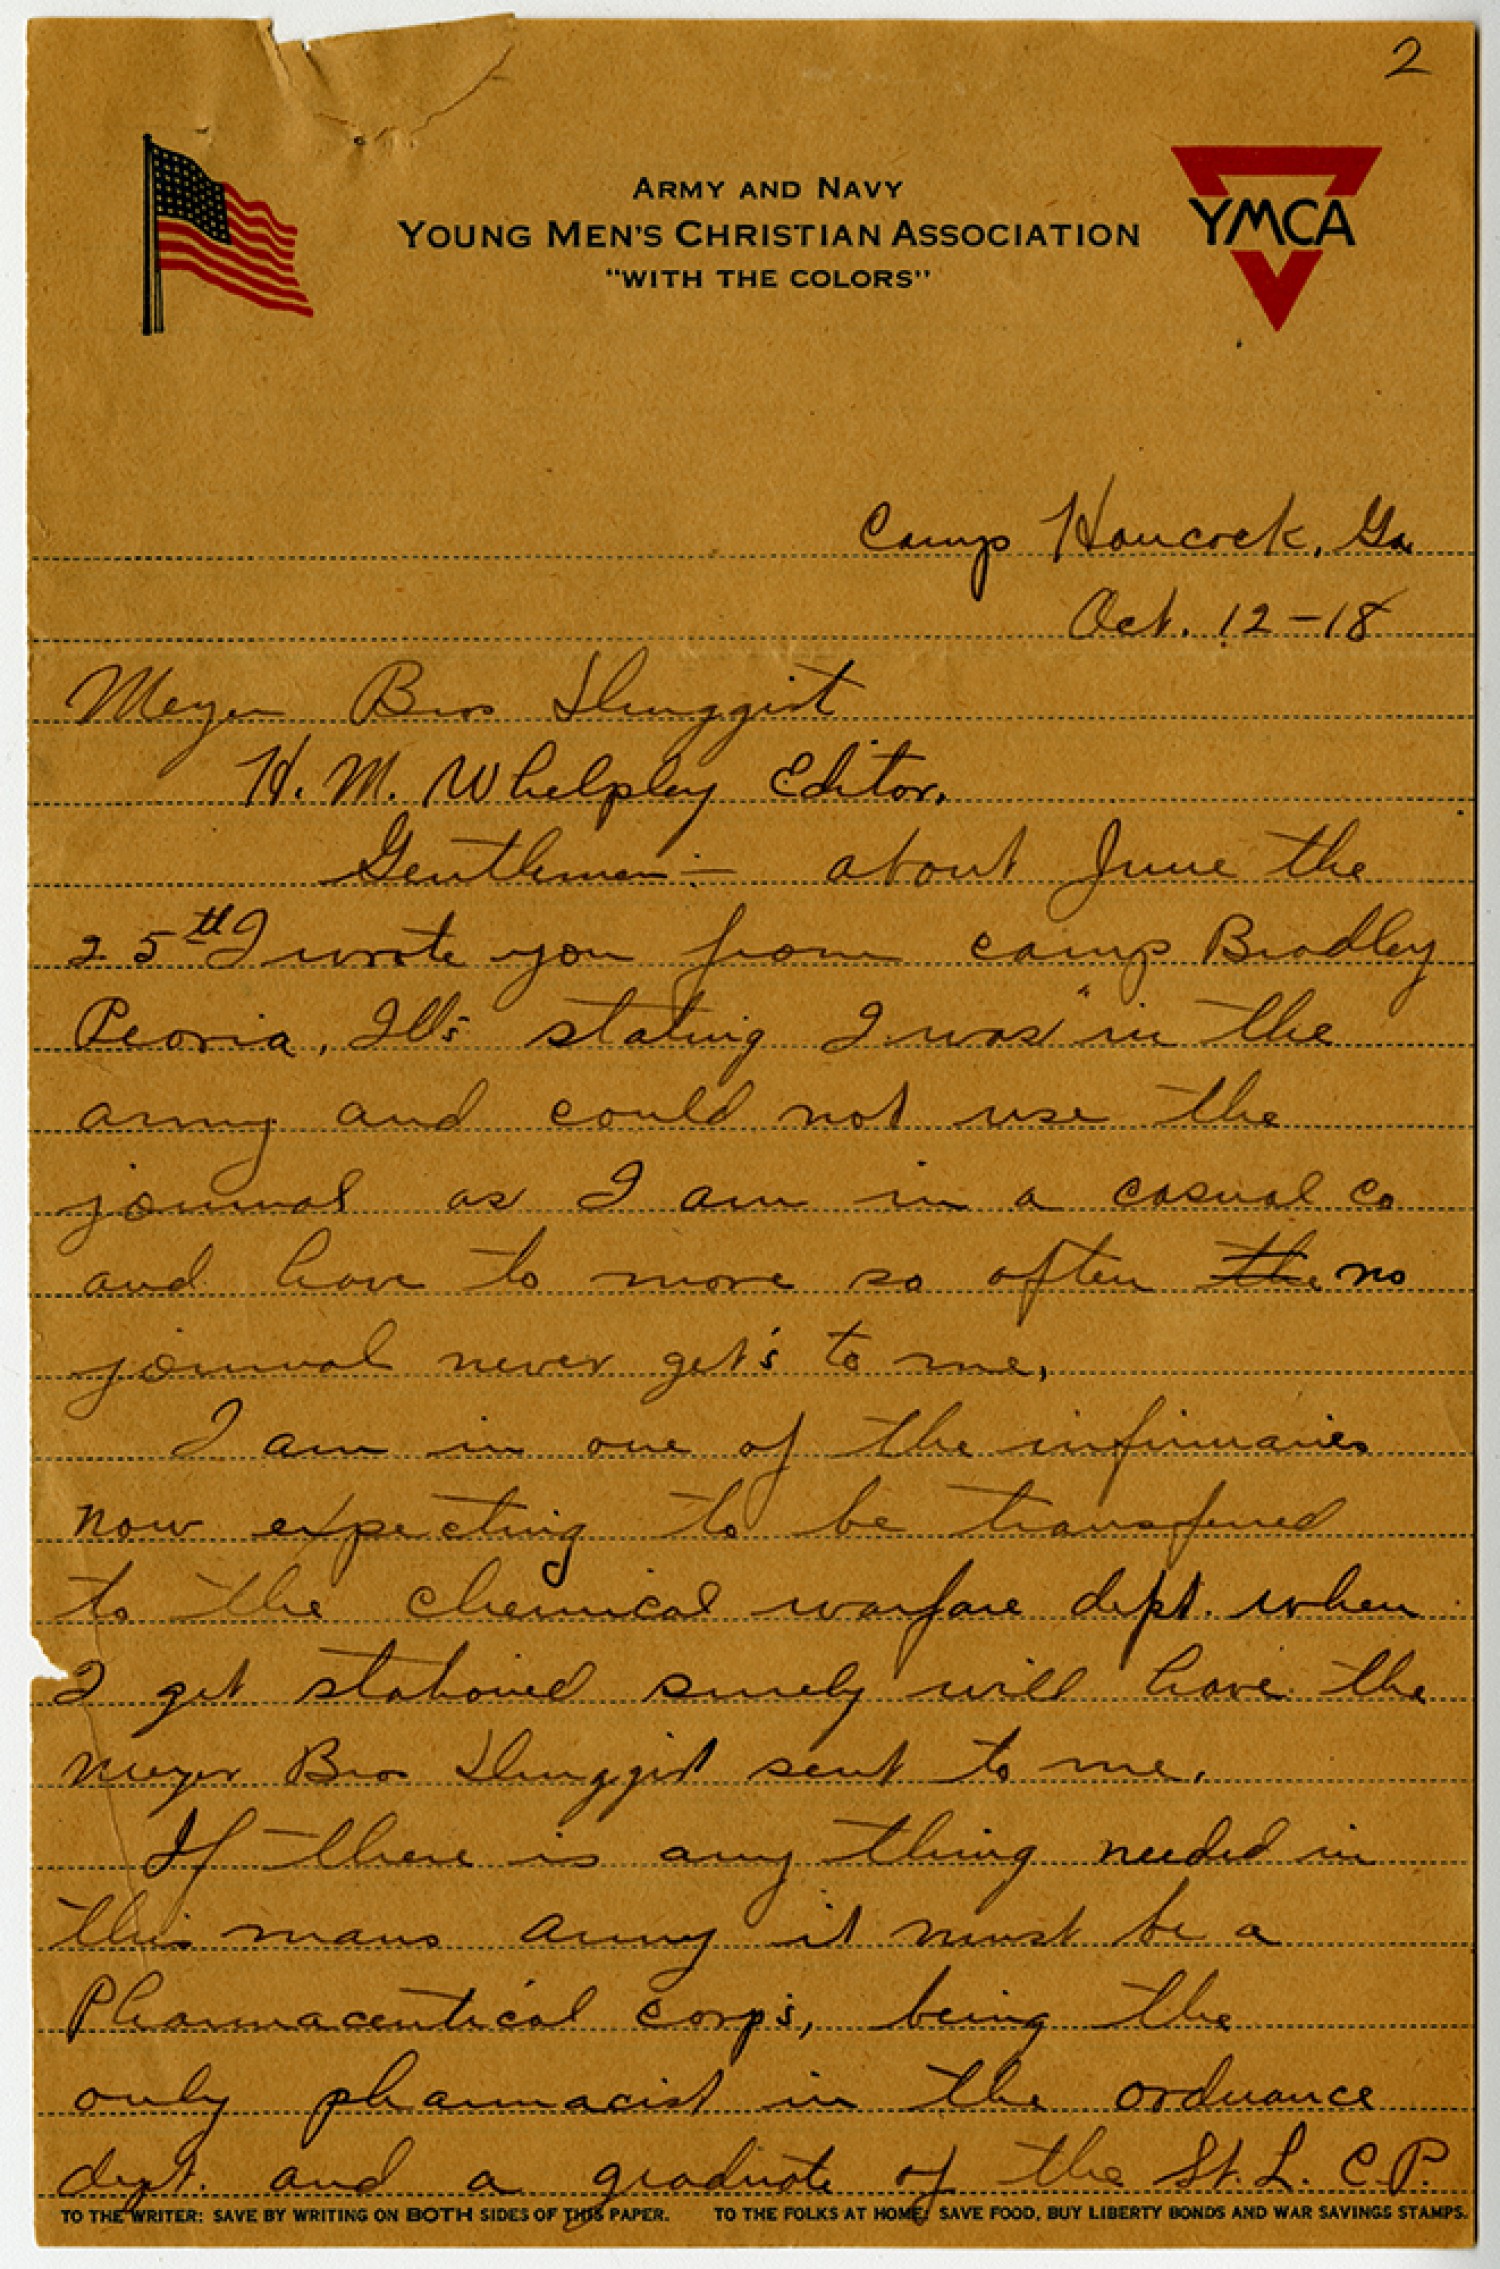 2
ARMY AND NAVY
YOUNG MEN'S CHRISTIAN ASSOCIATION
"WITH THE COLORS"
YMCA
Camp Hancock, Ga
Oct. 12-18
Meyer Bros Druggist
H. M. Whelpley Editor.
Gentlemen:- about June the
25th I wrote you from camp Bradley
Peoria, Ills stating I was in the
army and could not use the
journal as I am in a casual co
and have to move so often the no
journal never get's to me.
I am in one of the infirmaries
now expecting to be transferred
to the chemical warfare dept. when
I get stationed surely will have the
Meyer Bros Druggist sent to me.
If there is any thing needed in
this mans army it must be a
Pharmaceutical corp's, being the
only pharmacist in the ordnance
dept. and a graduate of the St. L. C.P.
TO THE WRITER: SAVE BY WRITING ON BOTH SIDES OF THIS PAPER. TO THE FOLKS AT HOME: SAVE FOOD, BUY LIBERTY BONDS AND WAR SAVINGS STAMPS.